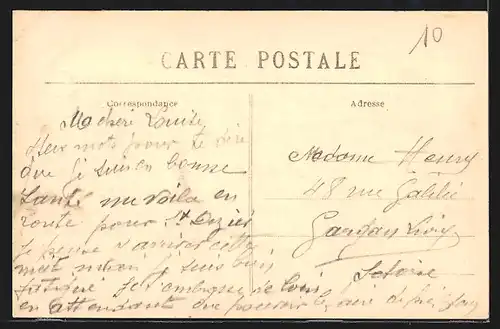 10
CARTE POSTALE
Correspondance
Adresse
Ma chère Louise
Deux mots pour te dire
que je suis en bonne
santé me voila en
route pour St Dizier
je pense y arriver
matin je suis bien
fatigué Je t'embrasse de loin
en attendant que pouvoir le faire de près
Madame Henry
48 rue Galilée
Gargan Livry
S et oise